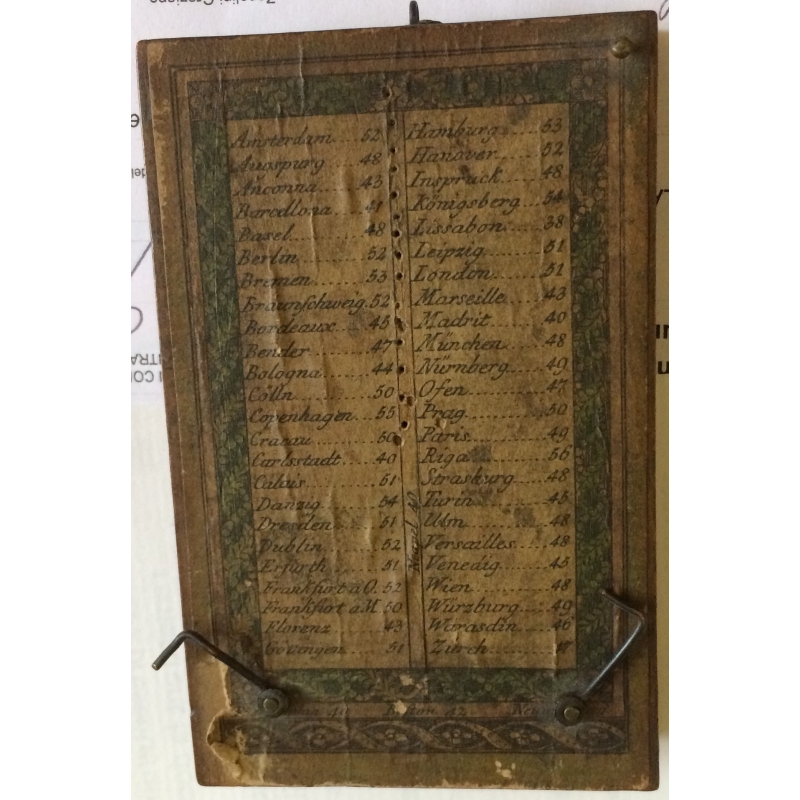 Amsterdam 52
Augspurg 48
Anconna 43
Barcellona 41
Basel 48
Berlin 52
Bremen 53
Braunschweig 52
Bordeaux 45
Bender 47
Bologna 44
Cölln 50
Copenhagen 55
Cracau 50
Carlsstadt 40
Calais 51
Danzig 54
Dresden 51
Dublin 52
Erfurth 51
Frankfurt a O. 52
Frankfurt a M. 50
Florenz 43
Göttingen 51
Hamburg 53
Hanover 52
Inspruck 48
Königsberg 54
Lissabon 38
Leipzig 51
London 51
Marseille 43
Madrit 40
München 48
Nürnberg 49
Ofen 47
Prag 50
Paris 49
Riga 56
Strasburg 48
Turin 45
Ulm 48
Versailles 48
Venedig 45
Wien 48
Würzburg 49
Warasdin 46
Zürch 47